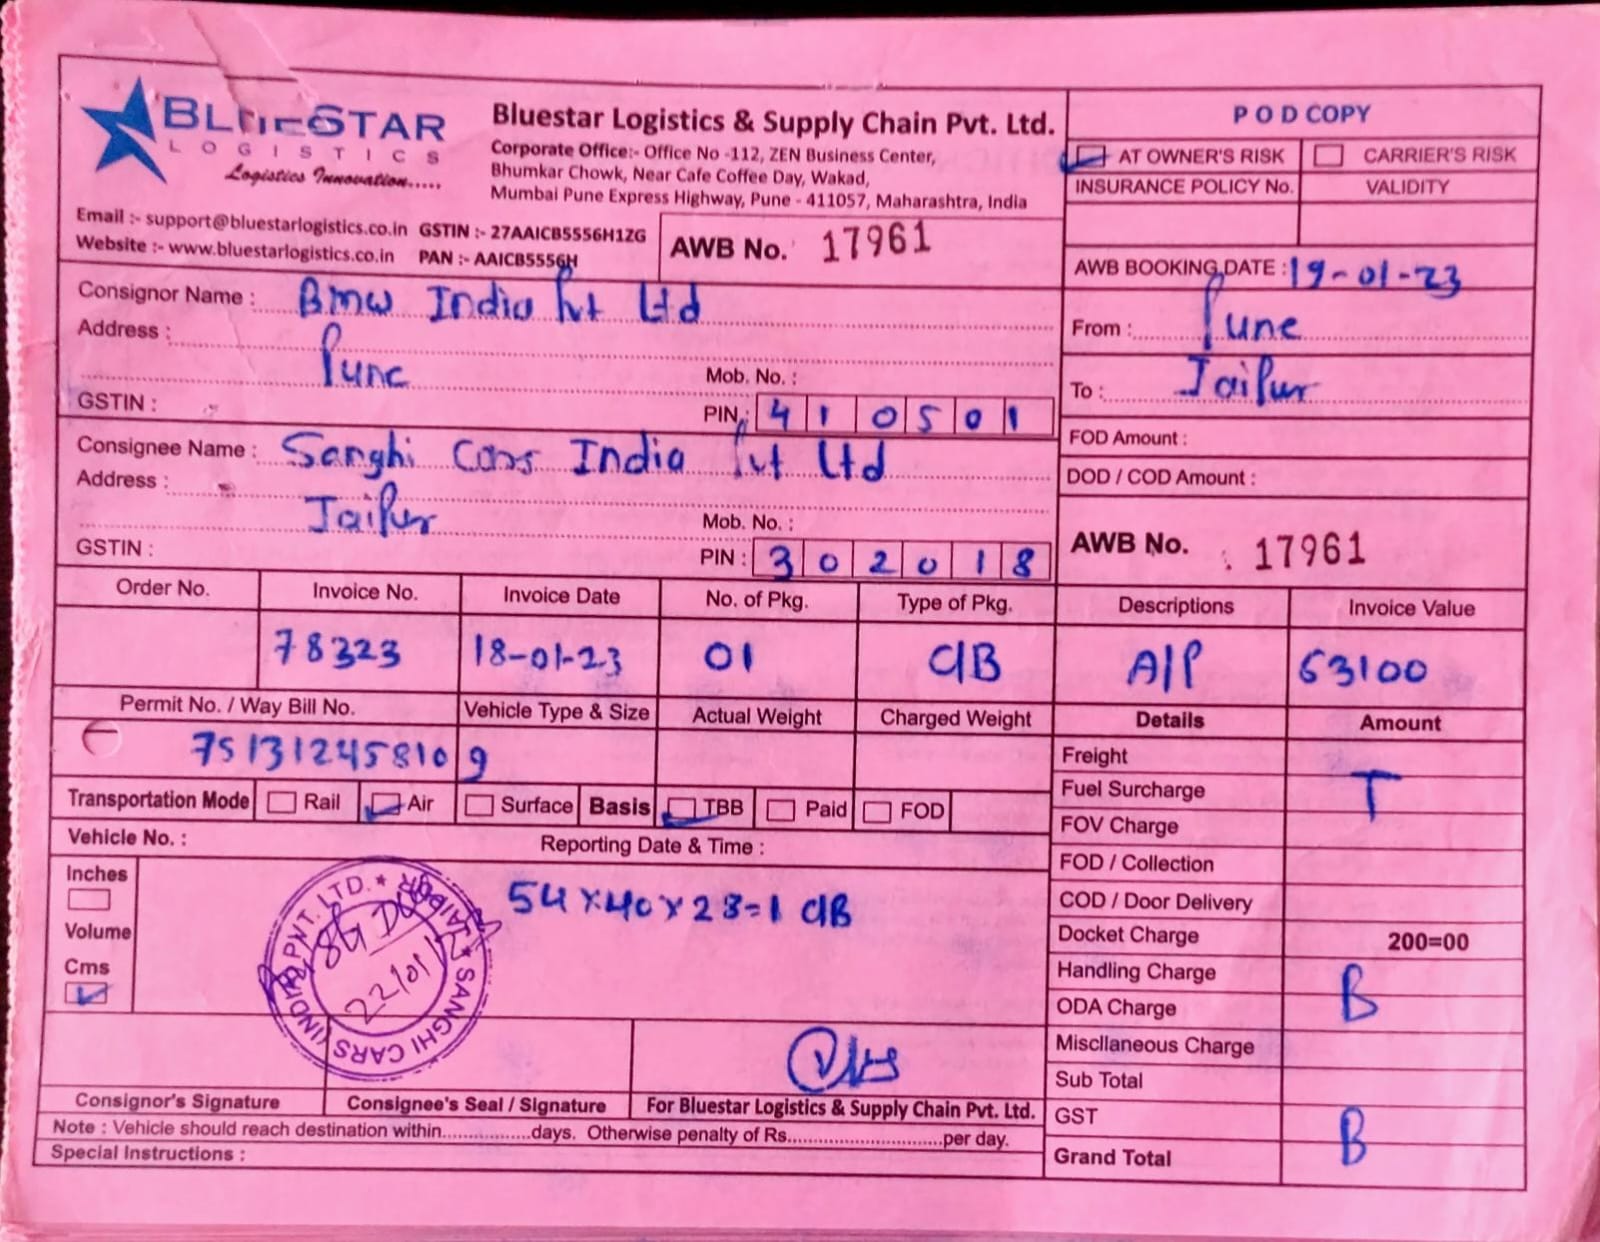 BLUESTAR
LOGISTICS
Logistics Innovation.....
Bluestar Logistics & Supply Chain Pvt. Ltd.
Corporate Office:- Office No -112, ZEN Business Center,
Bhumkar Chowk, Near Cafe Coffee Day, Wakad,
Mumbai Pune Express Highway, Pune - 411057, Maharashtra, India
Email :- support@bluestarlogistics.co.in GSTIN :- 27AAICB5556H1ZG
Website :- www.bluestarlogistics.co.in PAN :- AAICB5556H
AWB No. 17961
POD COPY
AT OWNER'S RISK CARRIER'S RISK
INSURANCE POLICY No. VALIDITY
AWB BOOKING DATE : 19-01-23
From : Pune
To : Jaipur
FOD Amount :
DOD / COD Amount :
AWB No. : 17961
Consignor Name : Bmw India Pvt Ltd
Address :
Pune Mob. No. :
GSTIN : PIN : 410501
Consignee Name : Sanghi Cars India Pvt Ltd
Address :
Jaipur Mob. No. :
GSTIN : PIN : 302018
Order No. Invoice No. Invoice Date No. of Pkg. Type of Pkg. Descriptions Invoice Value
78323 18-01-23 01 C/B A/P 53100
Permit No. / Way Bill No. Vehicle Type & Size Actual Weight Charged Weight Details Amount
751312458109
Transportation Mode Rail Air Surface Basis TBB Paid FOD
Vehicle No. : Reporting Date & Time :
Inches
Volume
Cms
54x40x23=1 C/B
SANGHI CARS (INDIA) PVT. LTD. * JAIPUR *
22/01/
Freight
Fuel Surcharge T
FOV Charge
FOD / Collection
COD / Door Delivery
Docket Charge 200=00
Handling Charge
ODA Charge B
Miscllaneous Charge
Sub Total
GST
Grand Total B
Consignor's Signature Consignee's Seal / Signature For Bluestar Logistics & Supply Chain Pvt. Ltd.
Note : Vehicle should reach destination within.................days. Otherwise penalty of Rs.............................per day.
Special Instructions :